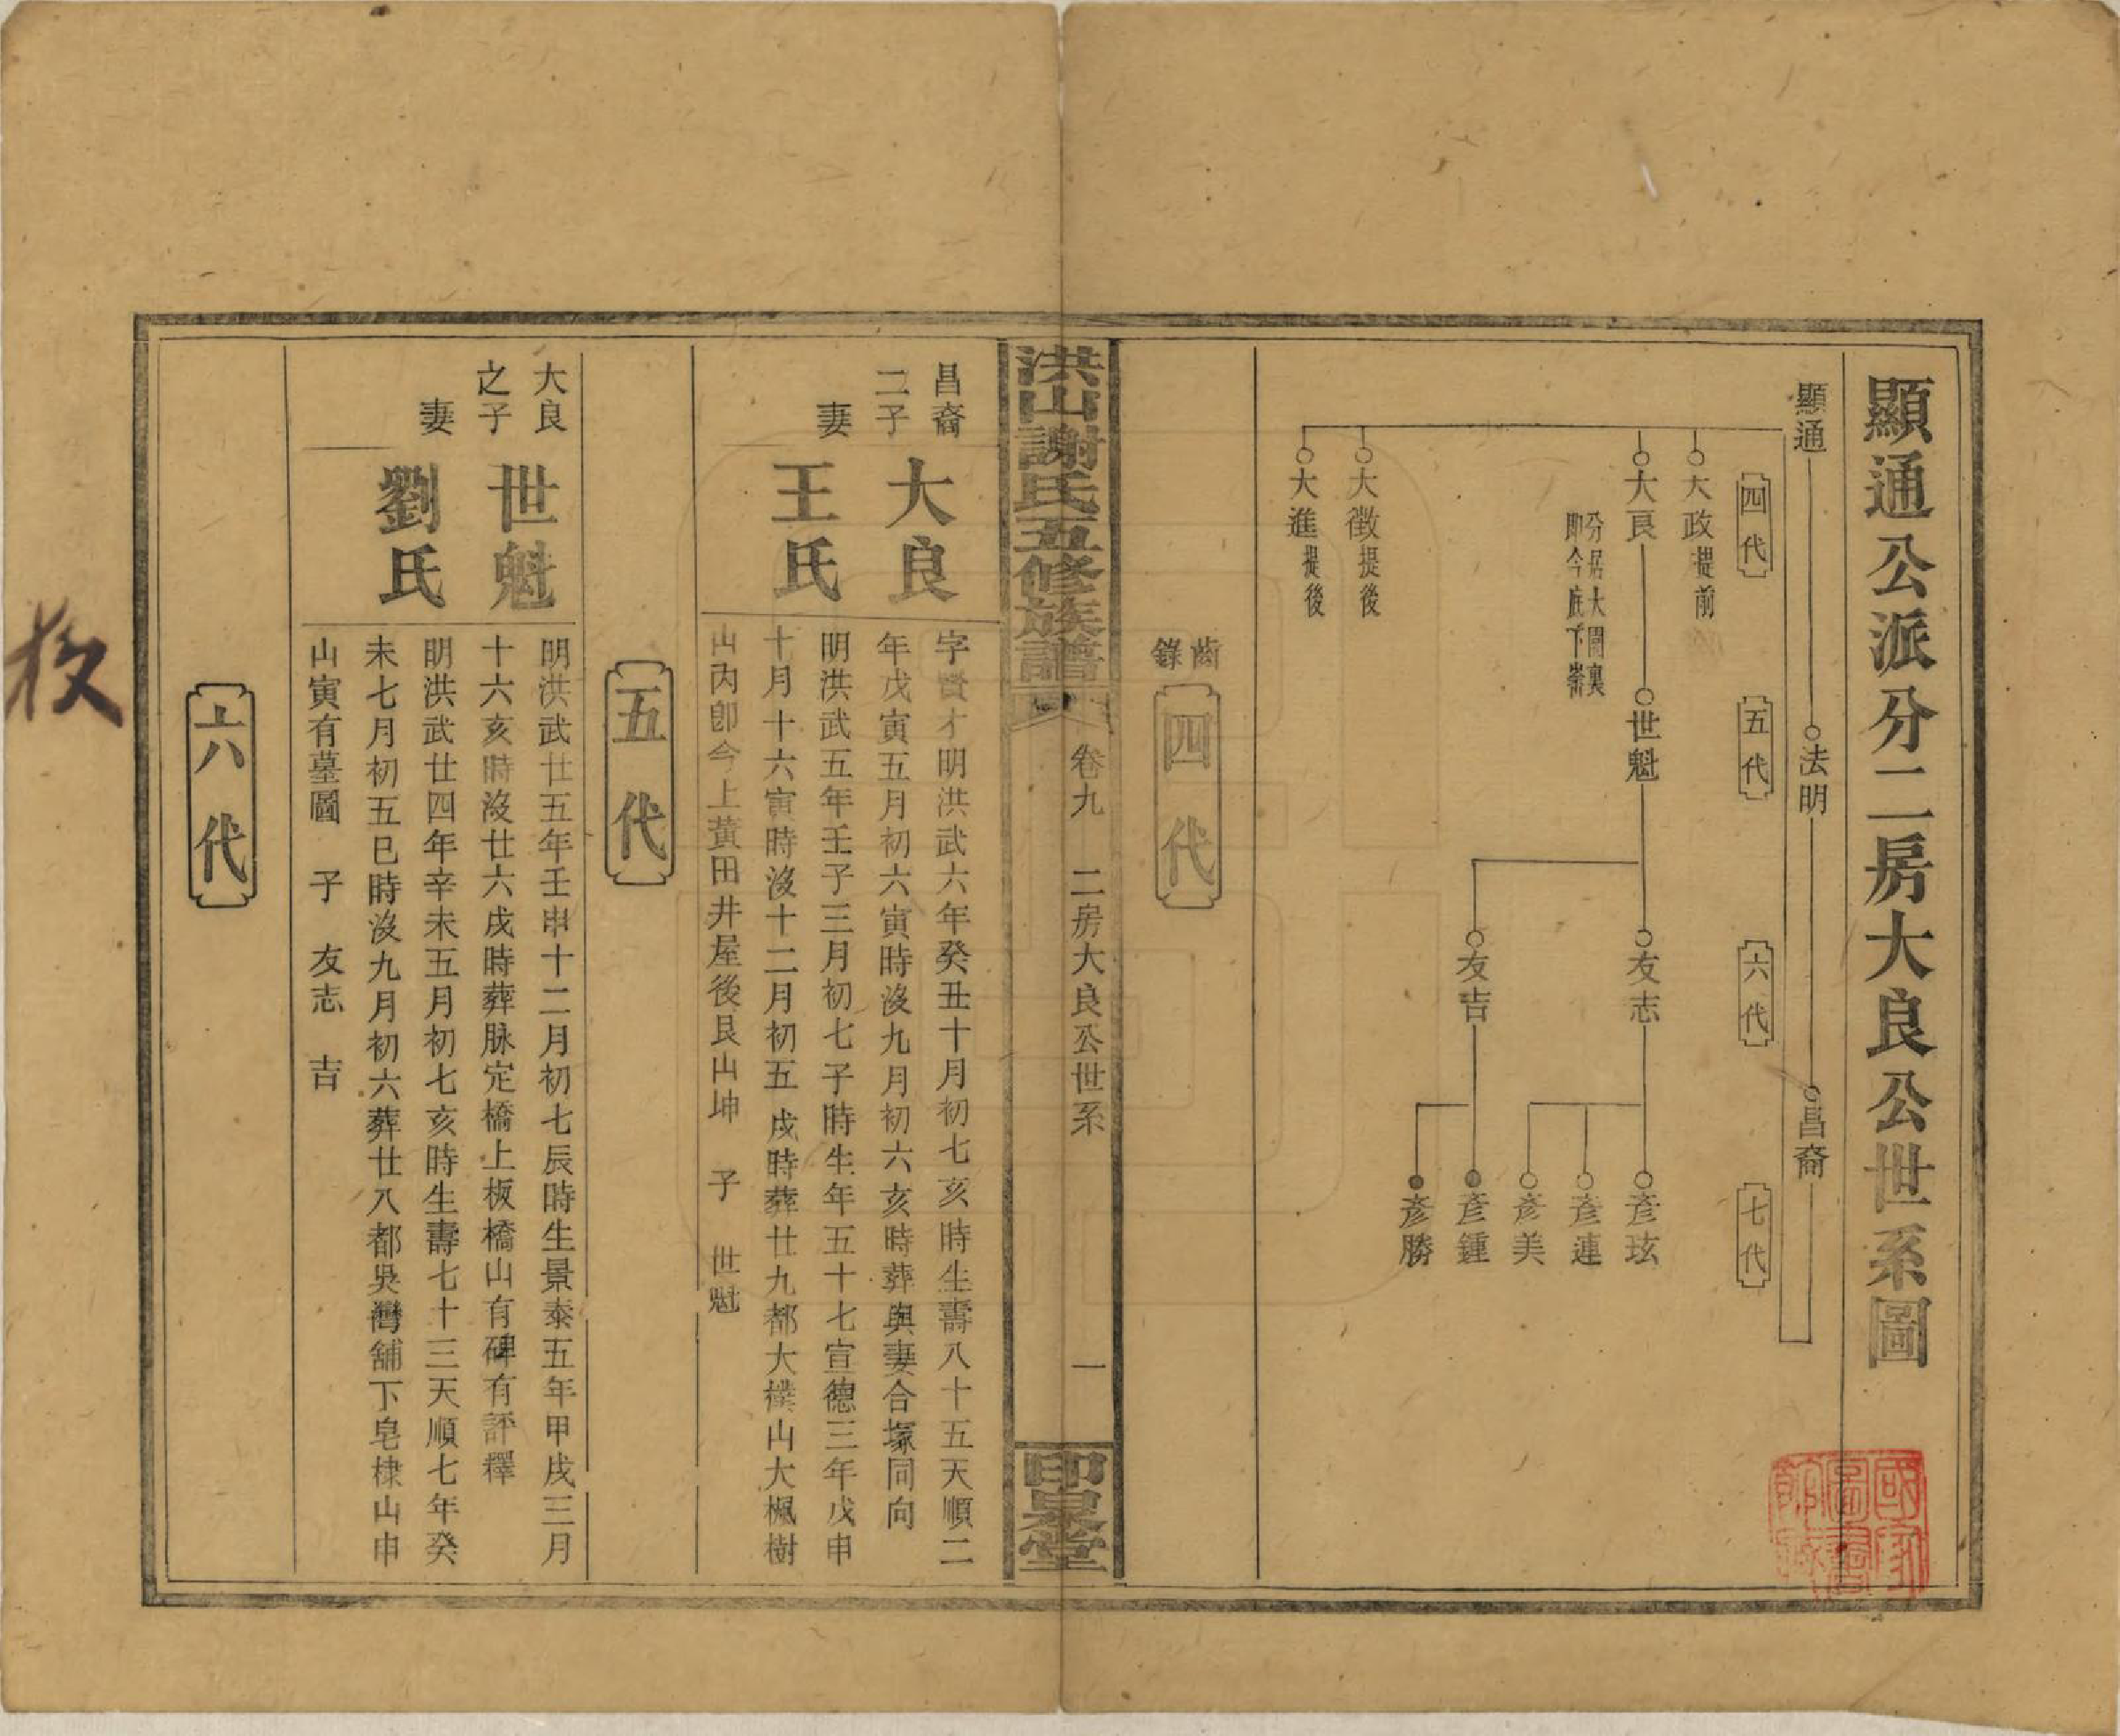 顯通公派分二房大良公世系圖
顯通
法明
昌裔
四代
五代
六代
七代
大政提前
大良
分居大圍裏
即今庄下崙
世魁
友志
彥玹
彥連
彥美
友吉
彥鍾
彥勝
大徵提後
大進提後
齒
錄
四代
洪山謝氏五修族譜
卷九
二房大良公世系
一
印泉堂
昌裔
二子
大良
字賢才明洪武六年癸丑十月初七亥時生壽八十五天順二
年戊寅五月初六寅時沒九月初六亥時葬與妻合塚同向
妻
王氏
明洪武五年壬子三月初七子時生年五十七宣德三年戊申
十月十六寅時沒十二月初五戌時葬廿九都大樸山大楓樹
山內卽今上黃田井屋後艮山坤 子 世魁
五代
大良
之子
世魁
明洪武廿五年壬申十二月初七辰時生景泰五年甲戌三月
十六亥時沒廿六戌時葬脉定橋上板橋山有碑有評釋
妻
劉氏
明洪武廿四年辛未五月初七亥時生壽七十三天順七年癸
未七月初五巳時沒九月初六葬廿八都吳灣舖下皂棣山申
山寅有墓圖 子 友志 吉
六代
國家
圖書
館藏